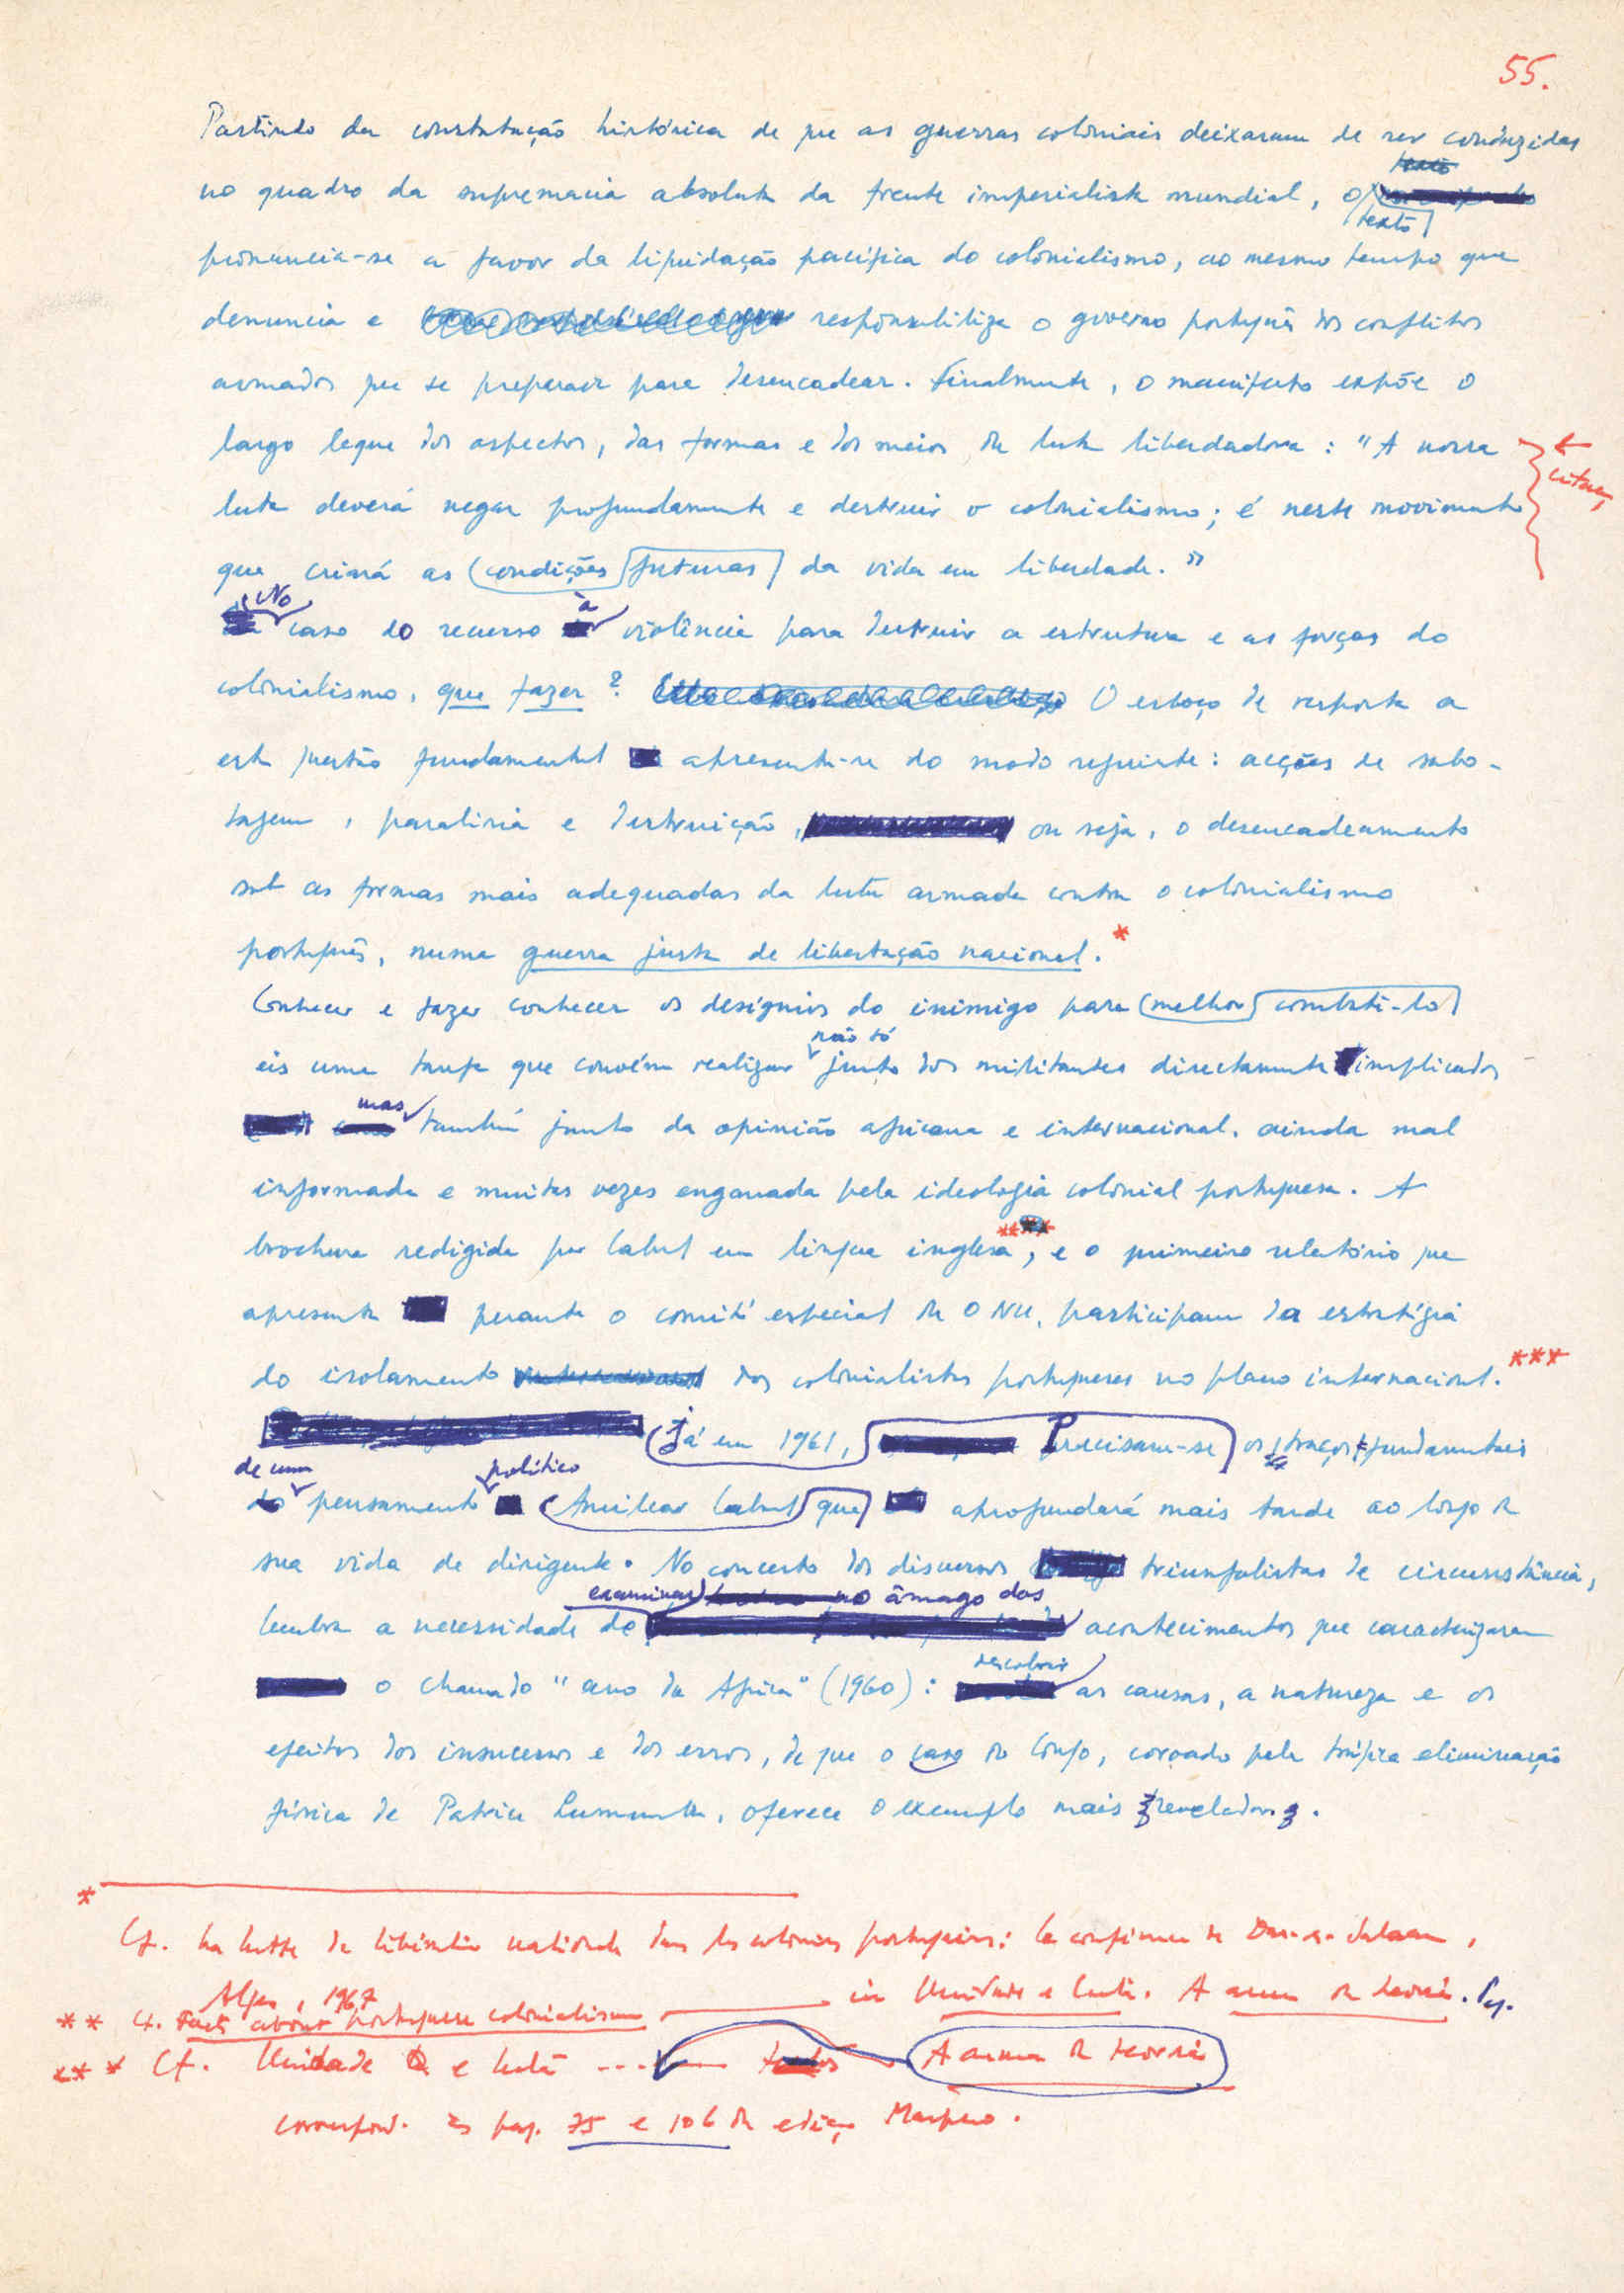 55.
Partindo da constatação histórica de que as guerras coloniais deixaram de ser conduzidas
texto
no quadro da supremacia absoluta da frente imperialista mundial, o
texto
pronuncia-se a favor da liquidação pacífica do colonialismo, ao mesmo tempo que
denuncia e responsabiliza o governo português dos conflitos
armados que se preparar para desencadear. Finalmente, o manifesto expõe o
largo leque dos aspectos, das formas e dos meios da luta liberdadora : "A nossa
luta deverá negar profundamente e destruir o colonialismo; é neste movimento
que criará as condições futuras da vida em liberdade."
No caso do recurso à violência para destruir a estrutura e as forças do
colonialismo, que fazer ? O esboço de resposta a
esta questão fundamental apresenta-se do modo seguinte : acções de sabo-
tagem, paralisia e destruição, ou seja, o desencadeamento
sob as formas mais adequadas da luta armada contra o colonialismo
português, numa guerra justa de libertação nacional. *
Conhecer e fazer conhecer os desígnios do inimigo para melhor combatê-lo
eis uma tarefa que convém realizar não só junto dos militantes directamente implicados
mas também junto da opinião africana e internacional, ainda mal
informada e muitas vezes enganada pela ideologia colonial portuguesa. A
brochura redigida por Cabral em língua inglesa, ** e o primeiro relatório que
apresenta perante o comité especial da ONU, participam da estratégia
do isolamento dos colonialistas portugueses no plano internacional. ***
Já em 1961, Precisam-se os traços fundamentais
de um pensamento político Amílcar Cabral que aprofundará mais tarde ao longo da
sua vida de dirigente. No concerto dos discursos triunfalistas de circunstância,
lembra a necessidade de examinar no âmago dos acontecimentos que caracterizaram
o chamado "ano da África" (1960) : descobrir as causas, a natureza e os
efeitos dos insucessos e dos erros, de que o caso do Congo, coroado pela trágica eliminação
física de Patrice Lumumba, oferece o exemplo mais revelador.
*
Cf. La lutte de libération nationale dans les colonies portugaises : la conférence de Dar-es-Salaam,
Alger, 1967 in Unidade e Luta. A arma da teoria. Pg.
** Cf. Facts about portuguese colonialism
*** Cf. Unidade e luta .... A arma da teoria
correspond. às pag. 75 e 106 da edição Maspero.